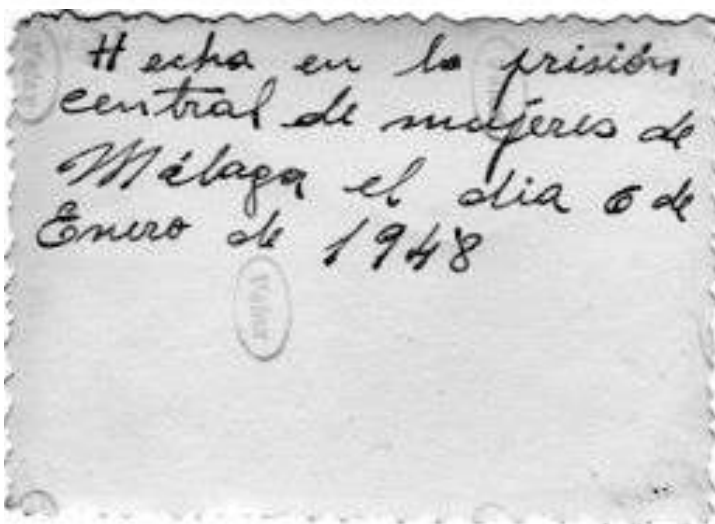 Hecha en la prisión
central de mujeres de
Málaga el dia 6 de
Enero de 1948